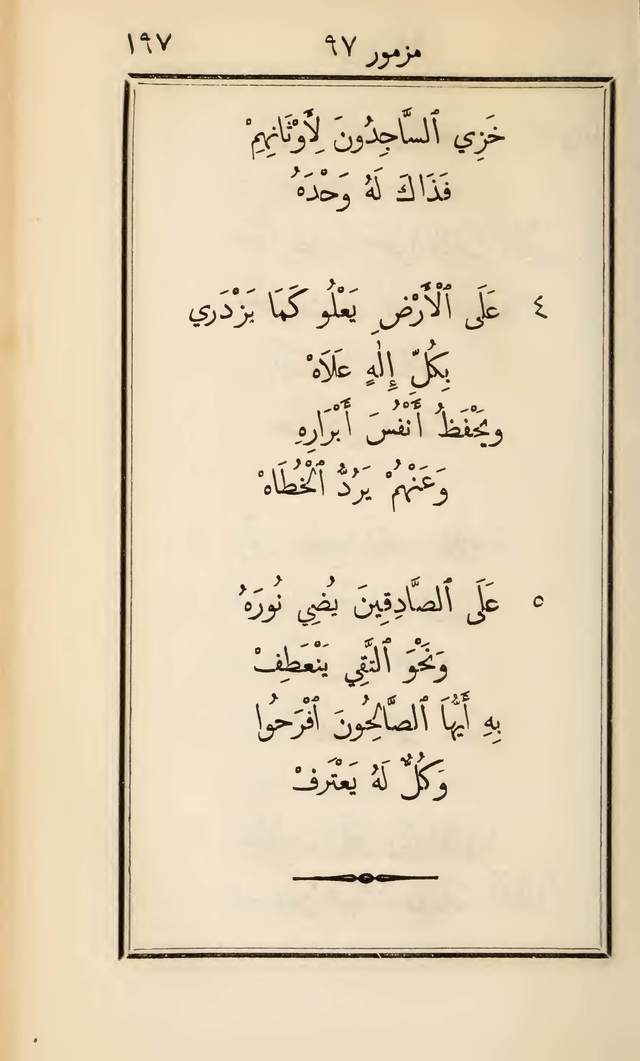 مزمور ٩٧ ١٩٧
خَزِي ٱلسَّاجِدُونَ لِأَوْثَانِهِمْ
فَذَاكَ لَهُ وَحْدَهُ
٤ عَلَى ٱلْأَرْضِ يَعْلُو كَمَا يَزْدَرِي
بِكُلِّ إِلٰهٍ عَلَاهْ
ويَحْفَظُ أَنْفُسَ أَبْرَارِهِ
وَعَنْهُمْ يَرُدُّ ٱلْخُطَاهْ
٥ عَلَى ٱلصَّادِقِينَ يُضِي نُورَهُ
وَنَحْوَ ٱلتَّقِي يَنْعَطِفْ
بِهِ أَيُّهَا ٱلصَّالِحُونَ ٱفْرَحُوا
وَكُلٌّ لَهُ يَعْتَرِفْ